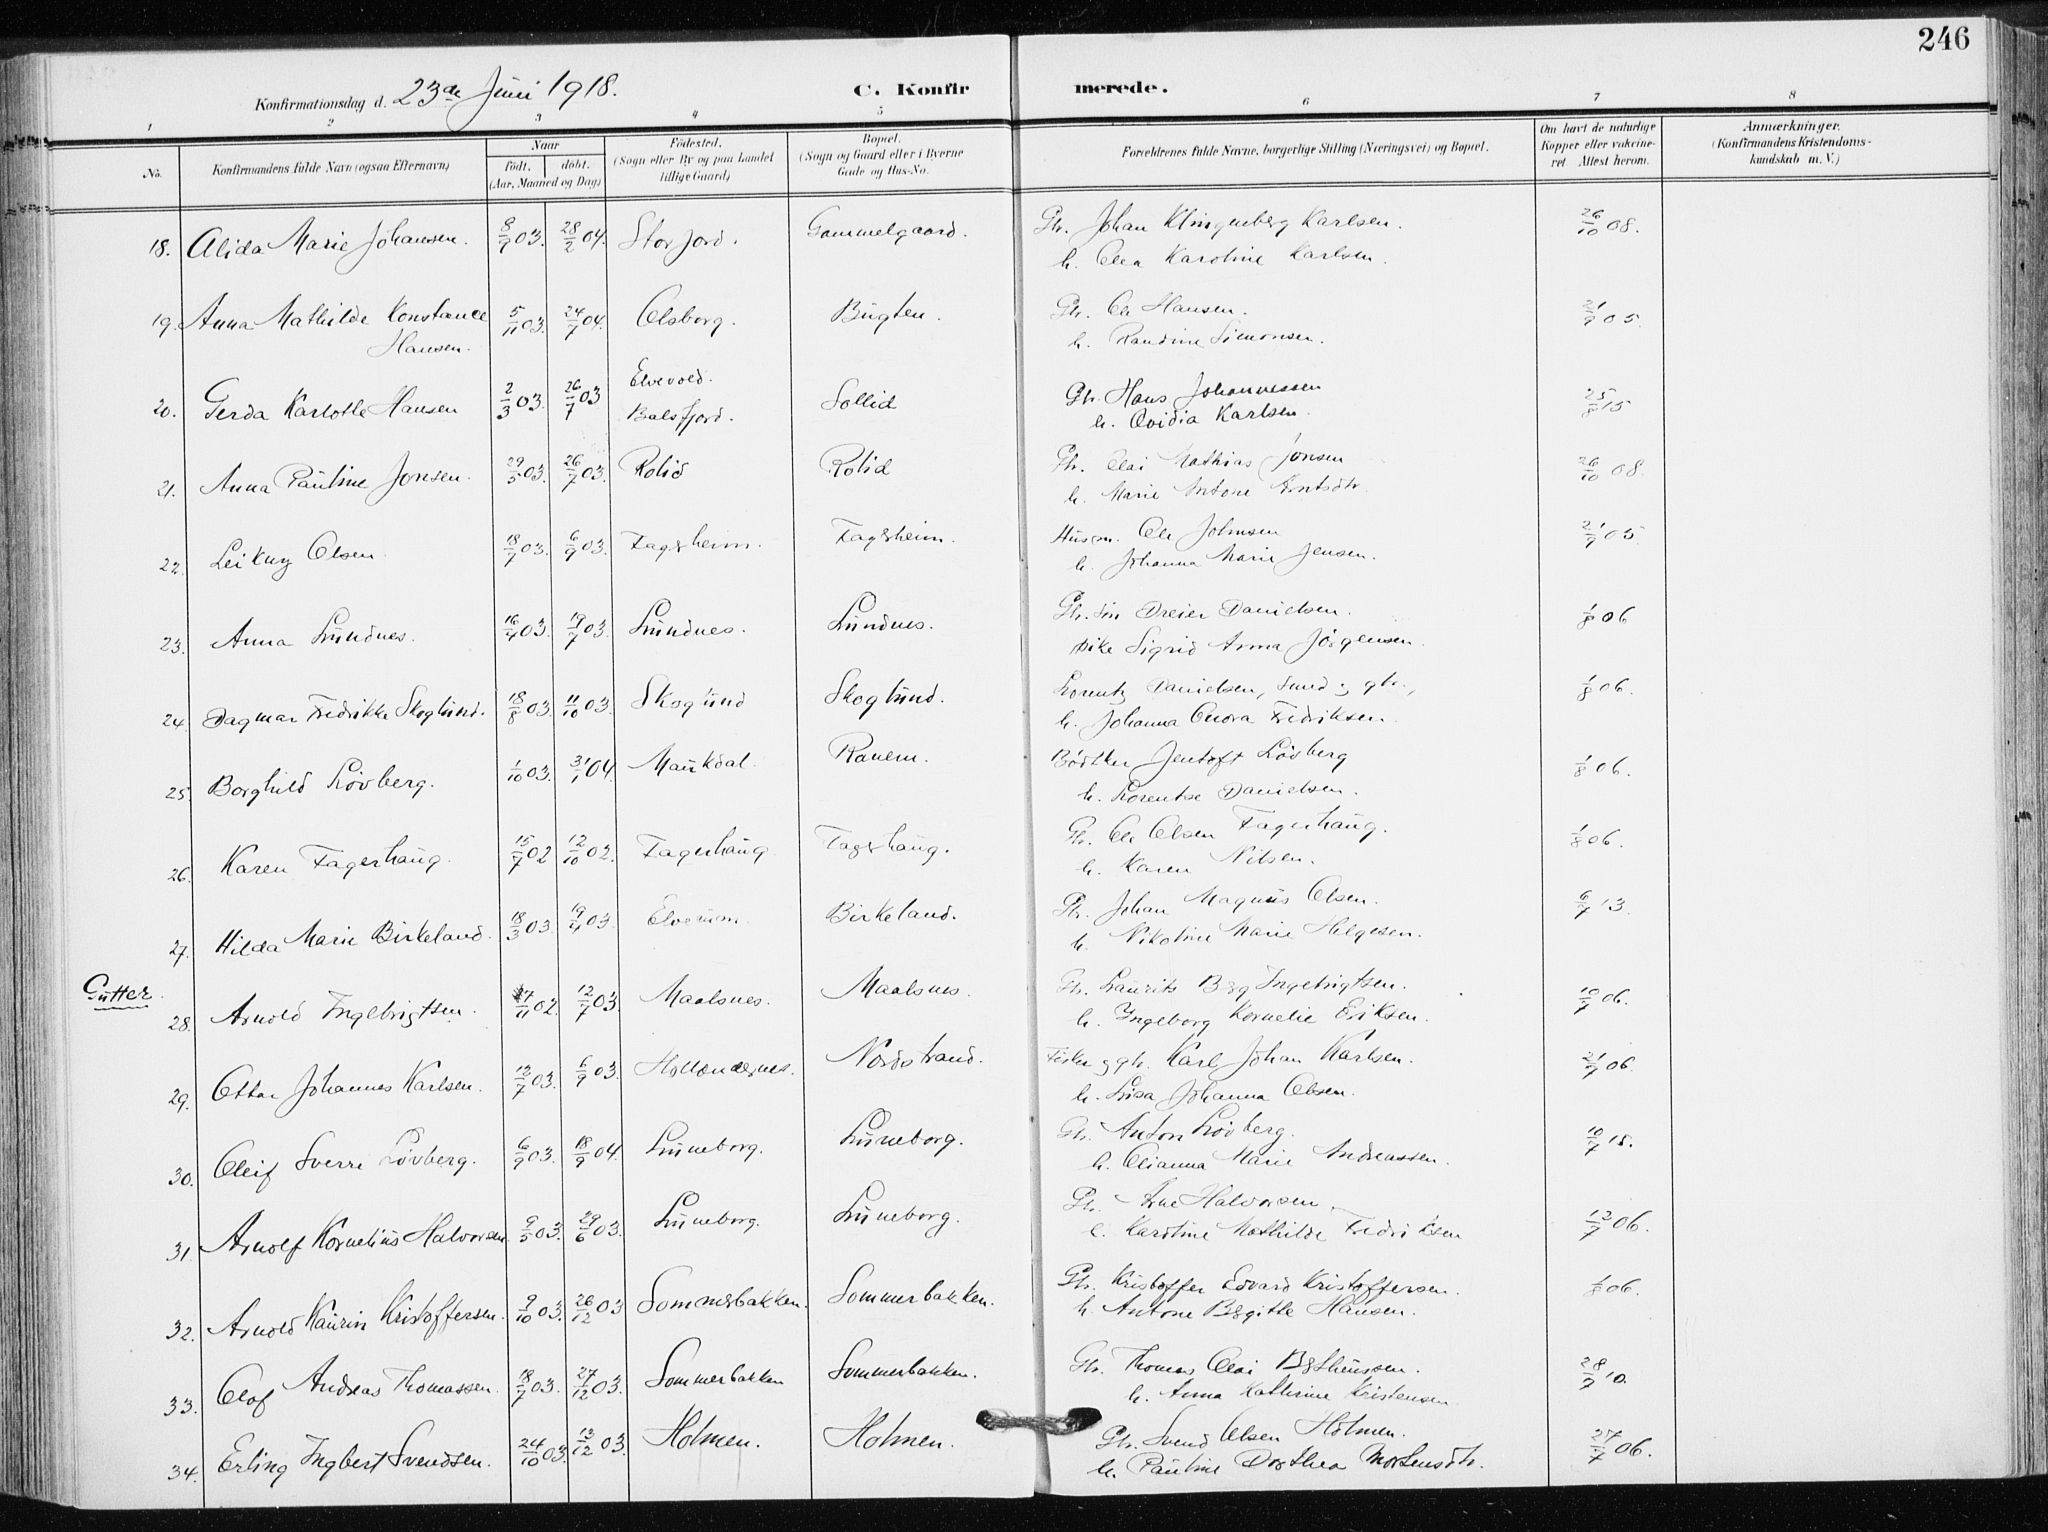 246
Konfirmationsdag d. 23de Juni 1918.
C. Konfir merede.
1 2 3 4 5 6 7 8
No.
Konfirmandens fulde Navn (ogsaa Efternavn)
Naar
födt. döbt.
(Aar, Maaned og Dag)
Födested.
(Sogn eller By og paa Landet
tillige Gaard)
Bopæl.
(Sogn og Gaard eller i Byerne
Gade og Hus-No.
Forældrenes fulde Navne, borgerlige Stilling (Næringsvei) og Bopæl.
Om havt de naturlige
Kopper eller vakcine-
ret Attest herom.
Anmærkninger.
(Konfirmandens Kristendoms-
kundskab m. V.)
18. Alida Marie Johansen. 8/9 03. 28/2 04. Storjord. Gammelgaard. Gbr. Johan Klingenberg Karlsen. 26/10 08.
h. Olea Karoline Karlsen.
19. Anna Mathilde Konstance 5/11 03. 24/7 04. Olsborg. Bugten. Gbr. Ole Hansen. 21/9 05.
Hansen. h. Randine Simonsen.
20. Gerda Karlotte Hansen 2/3 03. 26/7 03 Elvevold. Balsfjord. Sollid Gbr. Hans Johannessen 25/8 15
h. Ovidia Karlsen.
21. Anna Pauline Jonsen. 29/5 03. 26/7 03. Rolid Rolid Gbr. Olai Mathias Jonsen 26/10 08.
h. Marie Antone Erntsdtr.
22. Leikny Olsen. 18/7 03. 6/9 03. Fagerheim. Fagerheim. Husm. Ole Johnsen 21/9 05.
h. Johanna Marie Jensen.
23. Anna Lundnes. 16/4 03. 19/7 03. Lundnes. Lundnes. Gbr. søn Dreier Danielsen. 1/8 06
Pike Sigrid Anna Jörgensen.
24. Dagmar Fredrikke Skoglund. 18/8 03. 11/10 03. Skoglund Skoglund. Lorentz Danielsen, Smed og gbr., 1/8 06.
h. Johanna Fredriksen.
25. Borghild Lövberg. 1/10 03. 31/1 04. Maukdal. Ranem. Bödtker Jentoft Lövberg 1/8 06.
h. Lorentse Danielsen.
26. Karen Fagerhaug. 15/7 02 12/10 02. Fagerhaug Fagerhaug. Gbr. Ole Olsen Fagerhaug. 1/8 06.
h. Karen Nilsen.
27. Hilda Marie Birkeland. 18/3 03. 19/7 03 Elverum. Birkeland. Gbr. Johan Magnus Olsen. 6/7 13.
h. Nikoline Marie Helgesen.
Gutter.
28. Arnold Ingebrigtsen. 27/11 02. 12/7 03. Maalsnes. Maalsnes. Gbr. Laurits Berg Ingebrigtsen. 10/7 06.
h. Ingeborg Kornelie Eriksen.
29. Ottar Johannes Karlsen. 12/7 03. 6/9 03. Hollændernes. Nordstrand. Fisker og gbr. Karl Johan Karlsen. 21/7 06.
h. Lusa Johanna Olsen.
30. Oleif Sverre Lövberg. 6/9 03. 18/9 04. Luneborg. Luneborg. Gbr. Anton Lövberg. 10/7 15.
h. Olianna Marie Andreassen.
31. Arnolf Kornelius Halvorsen 9/5 03. 29/6 03. Luneborg. Luneborg. Gbr. Arne Halvorsen, 12/7 06.
h. Karoline Mathilde Fredriksen
32. Arnold Kaurin Kristoffersen. 9/10 03. 26/12 03 Sommerbakken. Sommerbakken. Gbr. Kristoffer Edvard Kristoffersen. 1/8 06.
h. Antone Bergitte Hansen.
33. Olaf Andreas Thomassen. 18/7 03. 27/12 03. Sommerbakken Sommerbakken. Gbr. Thomas Olai Bertheussen. 28/7 10.
h. Anna Kathrine Kristensen.
34. Erling Ingbert Svendsen. 24/10 03. 13/12 03. Holmen. Holmen. Gbr. Svend Olsen Holmen. 27/7 06.
h. Pauline Dorthea Mortensdtr.